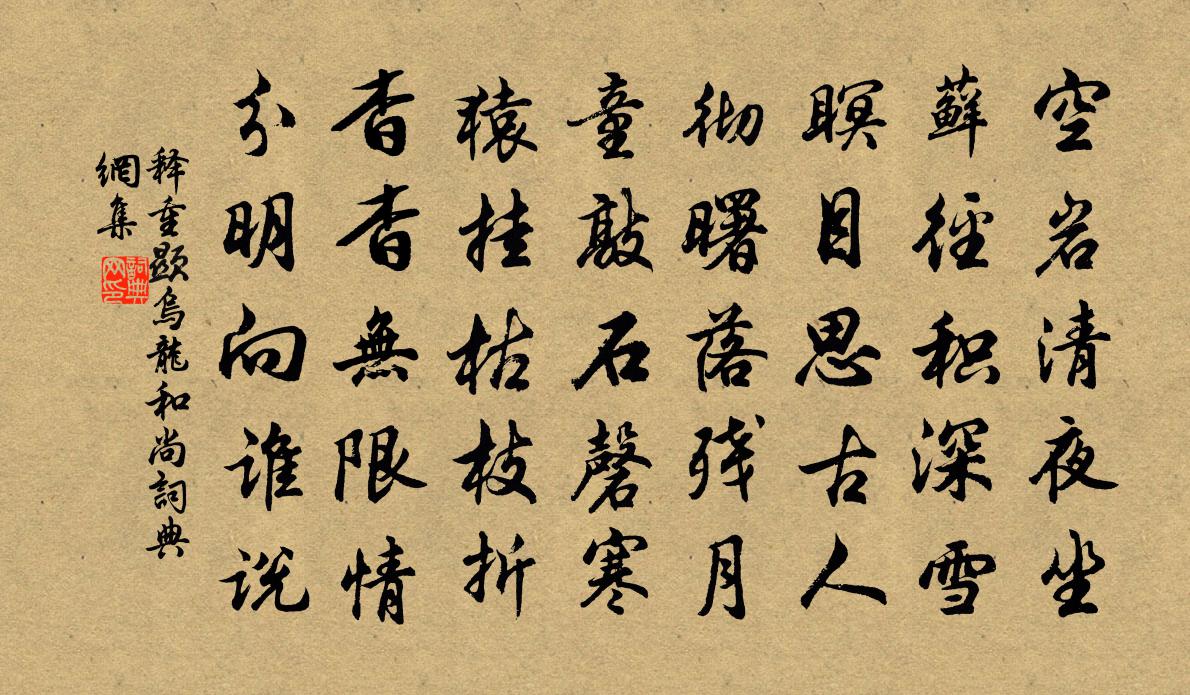 空岩清夜坐
蘚徑积深雪
瞑目思古人
彻曙落残月
童敲石磬寒
猿挂枯枝折
杳杳無限情
分明向谁说
释重顕烏龍和尚詞典
網集
詞典
网印